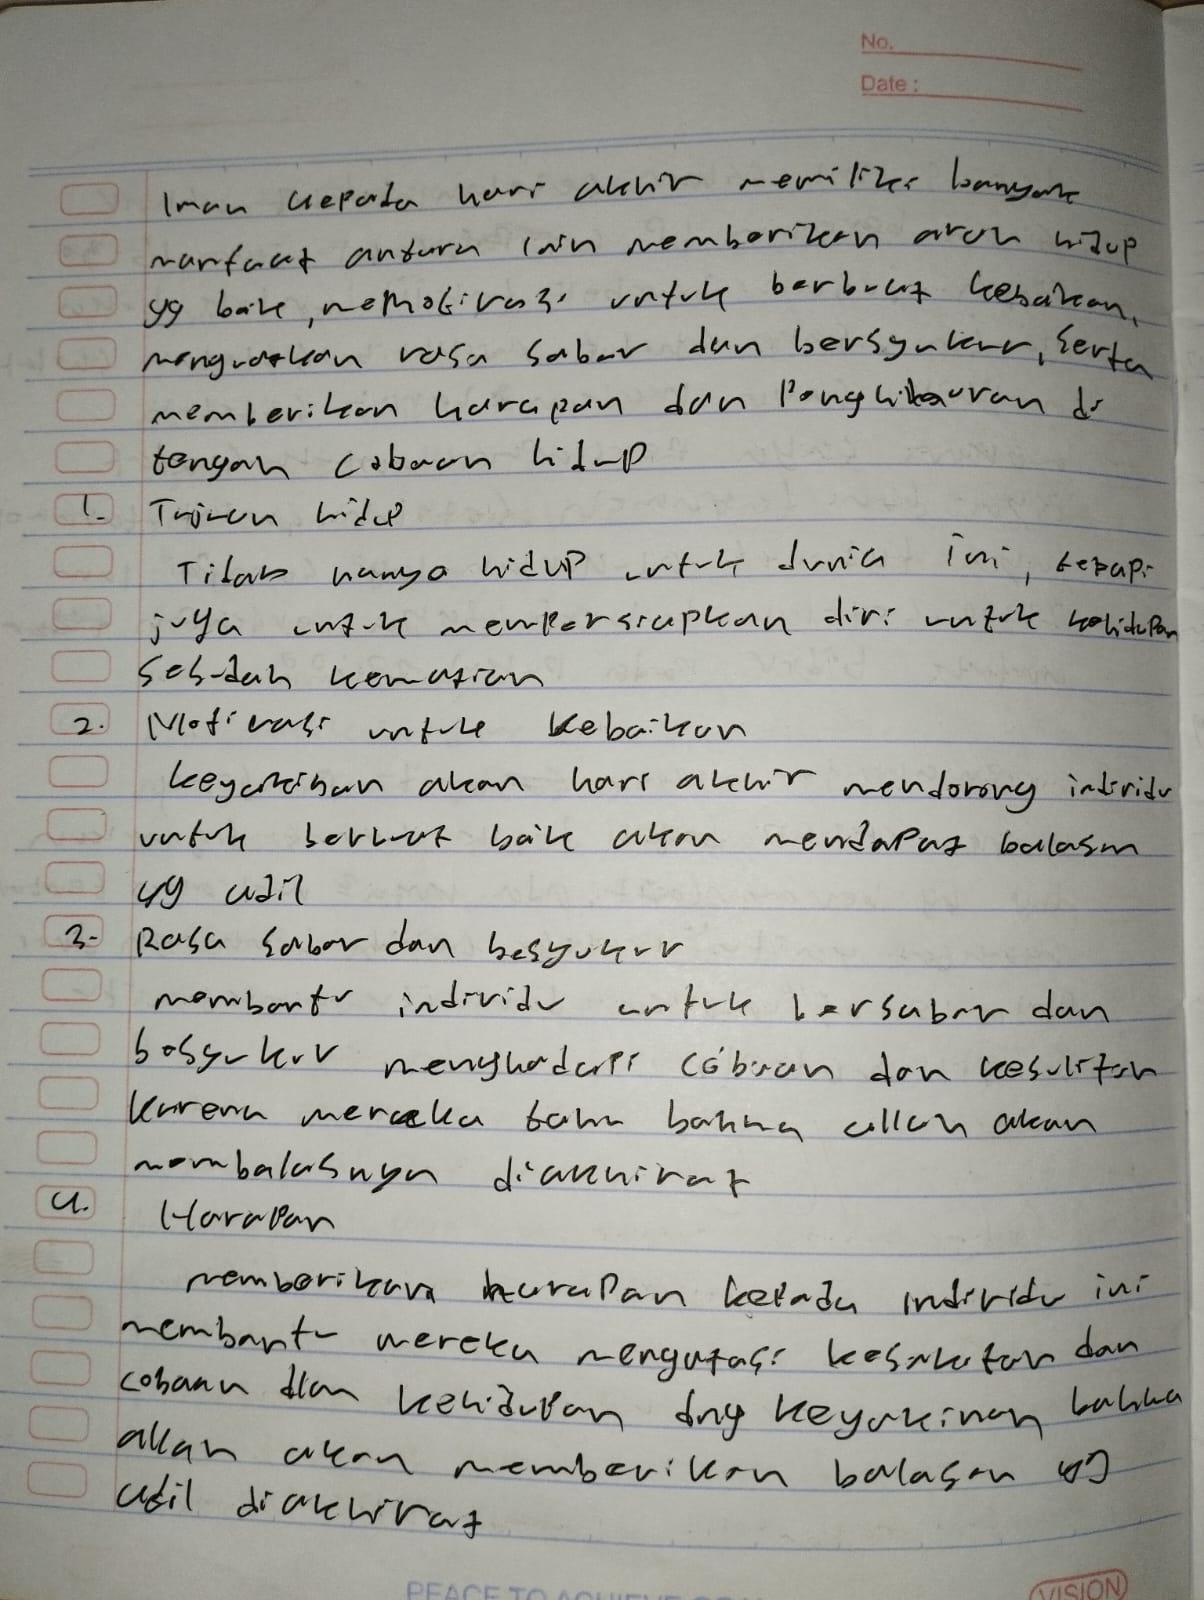 No.
Date :
Iman kepada hari akhir memiliki banyak
manfaat antara lain memberikan arah hidup
yg baik, memotivasi untuk berbuat kebaikan,
menguatkan rasa sabar dan bersyukur, serta
memberikan harapan dan Penghiburan di
tengah cobaan hidup
1. Tujuan hidup
Tidak hanya hidup untuk dunia ini, tetapi
juga untuk mempersiapkan diri untuk kehidupan
sesudah kematian
2. Motivasi untuk kebaikan
keyakinan akan hari akhir mendorong individu
untuk berbuat baik akan mendapat balasan
yg adil
3. Rasa sabar dan besyukur
membantu individu untuk bersabar dan
bosyukur menghadapi cobaan dan kesulitan
karena mereka tahu bahwa allah akan
membalasnya diakhirat
4. Harapan
memberikan harapan kepada individu ini
membantu mereka mengatasi kesulitan dan
cobaan dlam kehidupan dng keyakinan bahwa
allah akan memberikan balasan yg
adil diakhirat
PEACE TO
VISION